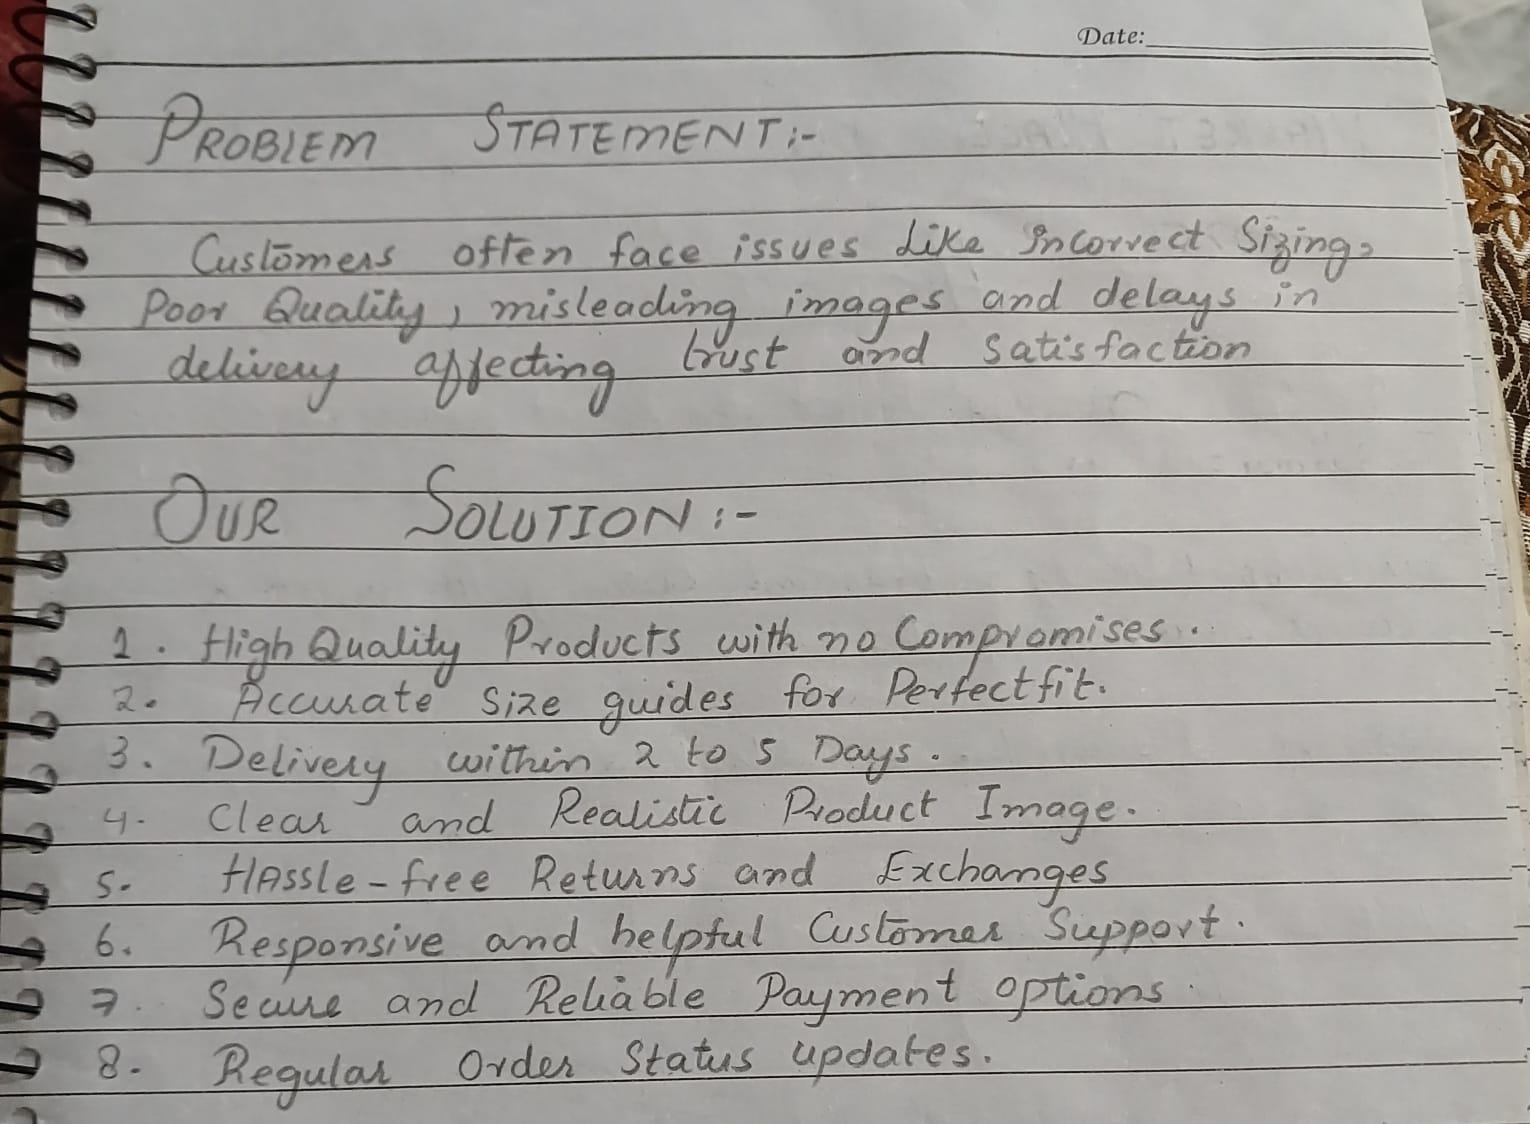 Date:
PROBLEM STATEMENT:-
Customers often face issues like Incorrect Sizing,
Poor Quality, misleading images and delays in
delivery affecting trust and satisfaction
OUR SOLUTION:-
1. High Quality Products with no Compromises.
2. Accurate Size guides for Perfectfit.
3. Delivery within 2 to 5 Days.
4. Clear and Realistic Product Image.
5. HAssle-free Returns and Exchanges
6. Responsive and helpful Customer Support.
7. Secure and Reliable Payment options.
8. Regular Order Status updates.